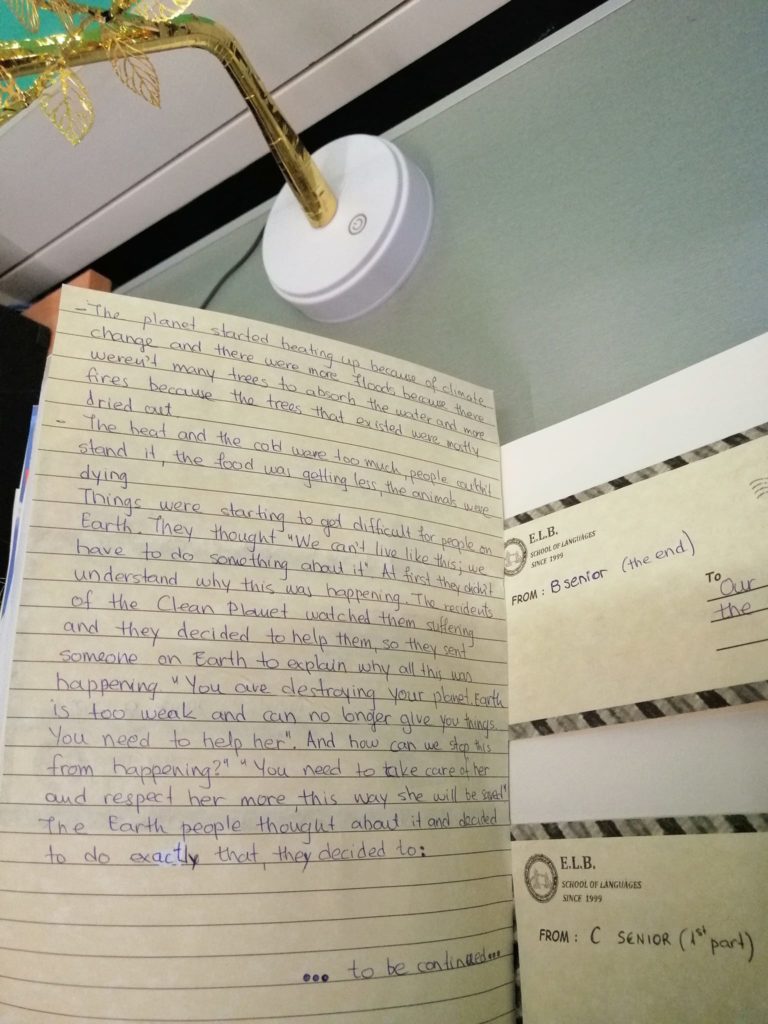 -The planet started heating up because of climate
change and there were more floods because there
weren't many trees to absorb the water and more
fires because the trees that existed were mostly
dried out
- The heat and the cold were too much, people couldn't
stand it, the food was getting less, the animals were
dying
Things were starting to get difficult for people on
Earth. They thought "We can't live like this; we
have to do something about it" At first they didn't
understand why this was happening. The residents
of the Clean Planet watched them suffering
and they decided to help them, so they sent
someone on Earth to explain why all this was
happening "You are destroying your planet. Earth
is too weak and can no longer give you things.
You need to help her". And how can we stop this
from happening?" "You need to take care of her
and respect her more, this way she will be saved"
The Earth people thought about it and decided
to do exactly that, they decided to:
... to be continued...
E.L.B.
SCHOOL OF LANGUAGES
SINCE 1999
FROM: B senior (the end)
To Our
the
E.L.B.
SCHOOL OF LANGUAGES
SINCE 1999
FROM: C SENIOR (1st part)